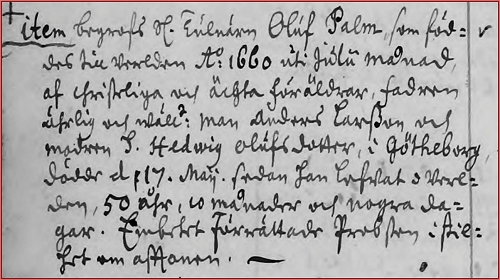 † item begrofs Sl. Tulnärn Oluf Palm, som föd=
des till Verlden A:o 1660 uti Julii månad,
af christeliga och ächta föräldrar, fadren
ährlig och wäl: man Anders Larsson och
modren H. Hedwig Olufsdotter, i Götheborg,
dödde d 17. Maij. sedan han lefvat i Verl=
den, 50 åhr, 10 månader och nogra da=
gar. Embetet förrättade Probsten i stil=
het om afftonen. —